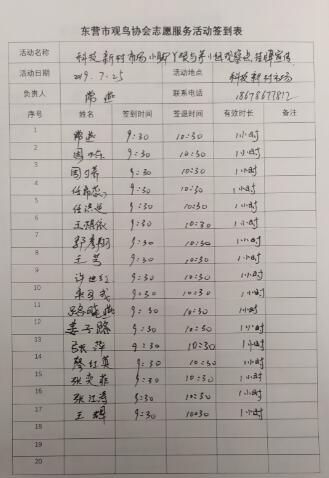 东营市观鸟协会志愿服务活动签到表
活动名称 科技新村市场
活动日期 2019.7.25 活动地点 科技新村市场
负责人 常 联系电话
序号 姓名 签到时间 签退时间 有效时长 备注
1 常 9:30 10:30 1小时
2 周 9:30 10:30 1小时
3 周 9:30 10:30 1小时
4 任 9:30 10:30 1小时
5 任 9:30 10:30 1小时
6 王 9:30 10:30 1小时
7 9:30 10:30 1小时
8 王 9:30 10:30 1小时
9 许世红 9:30 10:30 1小时
10 9:30 10:30 1小时
11 路晓燕 9:30 10:30 1小时
12 姜子 9:30 10:30 1小时
13 张萍 9:30 10:30 1小时
14 红英 9:30 10:30 1小时
15 张奕菲 9:30 10:30 1小时
16 张江涛 9:30 10:30 1小时
17 王 9:30 10:30 1小时
18
19
20